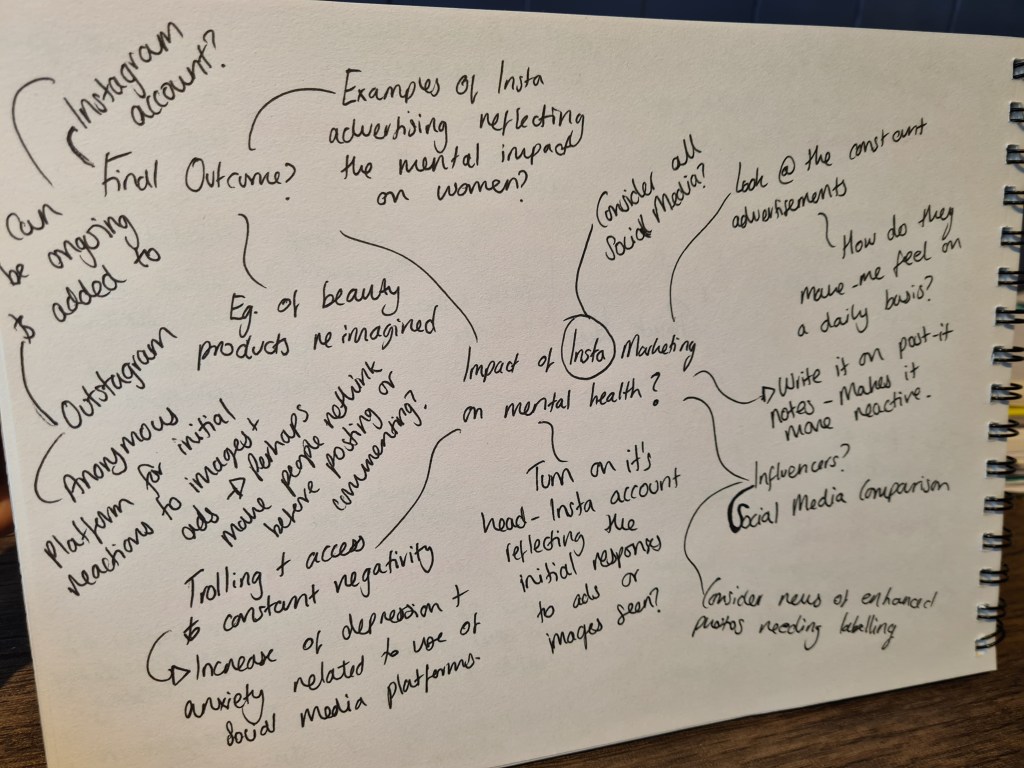 Instagram
account?
Final Outcome?
Can
be ongoing
& added to
Outstagram
Anonymous
platform for initial
reactions to images +
ads → perhaps
make people rethink
before posting or
commenting?
Examples of Insta
advertising reflecting
the mental impact
on women?
Eg. of beauty
products reimagined
Consider all
Social Media?
Look @ the constant
advertisements
How do they
make me feel on
a daily basis?
Impact of Insta Marketing
on mental health?
→ Write it on post-it
notes - Makes it
more reactive.
Influencers?
Social Media Comparison
Consider news of enhanced
photos needing labelling
Turn on it's
head - Insta account
reflecting the
initial responses
to ads or
images seen?
Trolling + access
& constant negativity
→ Increase of depression +
anxiety related to use of
Social media platforms.